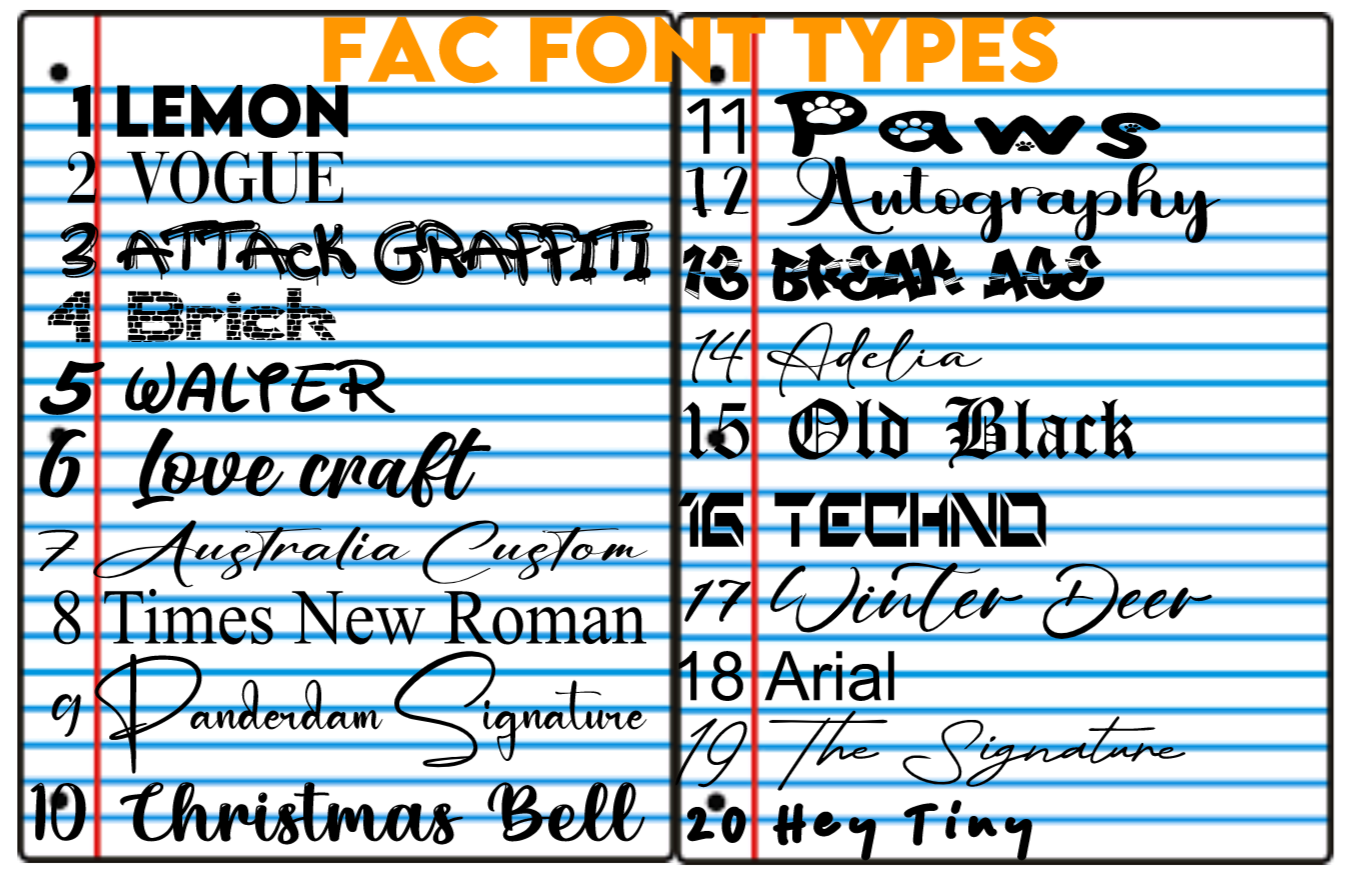 FAC FONT TYPES
1 LEMON
2 VOGUE
3 ATTACK GRAFFITI
4 Brick
5 WALTER
6 Love craft
7 Australia Custom
8 Times New Roman
9 Panderdam Signature
10 Christmas Bell
11 Paws
12 Autography
13 BREAK AGE
14 Adelia
15 Old Black
16 TECHNO
17 Winter Deer
18 Arial
19 The Signature
20 Hey Tiny